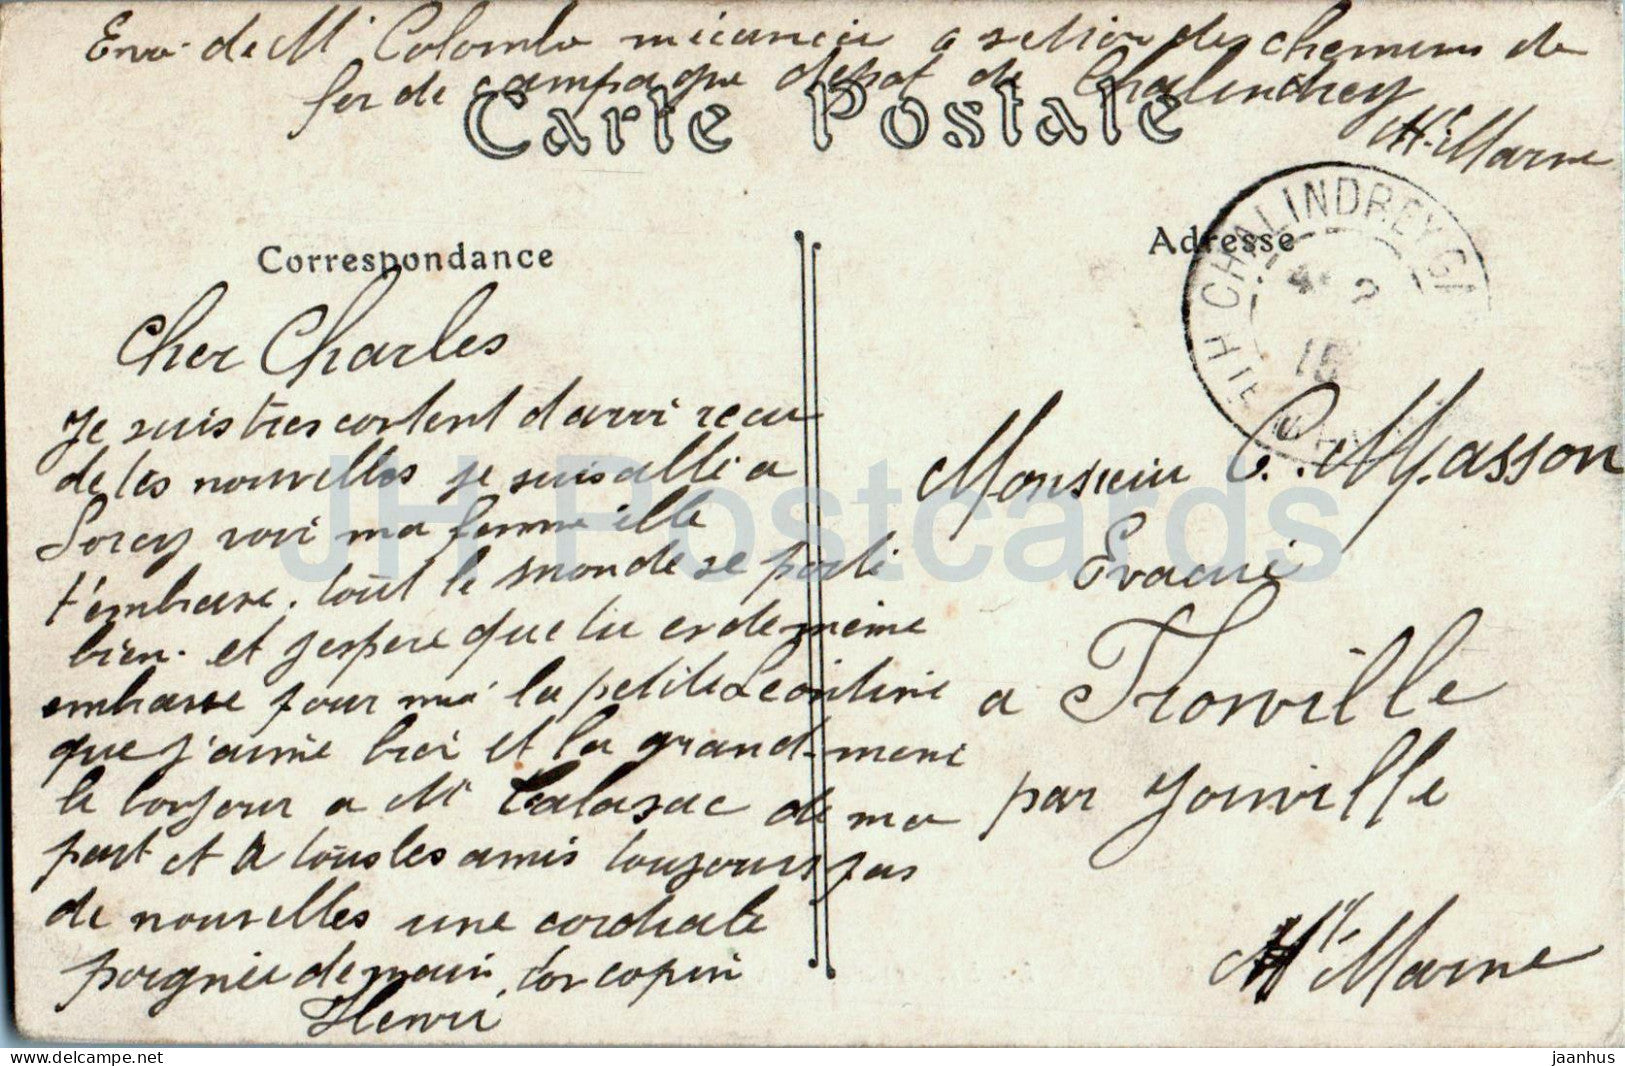 Envoi de Mr Colombo mécanicien 9e section des chemins de
fer de campagne depot de Chalindrey
Hte Marne
Carte Postale
Correspondance
Adresse
CHALINDREY GARE
Hte MARNE
15
Cher Charles
Je suis tres content d'avoi recu
de tes nouvelles je suis allé a
Sorcy voir ma femme elle
t'embrase. tout le monde se porte
bien. et jespere que tu es de même
embrasse pour moi la petite Leontine
que j'aime bien et la grand-mere
le bonjour a Mr Calasac de ma
part et a tous les amis toujours pas
de nouvelles une cordiale
poignée de main ton copin
Henri
Monsieur C. Masson
Evacué
a Tronville
par Joinville
Hte Marne
JH Postcards
jaanhus @ delcampe.net